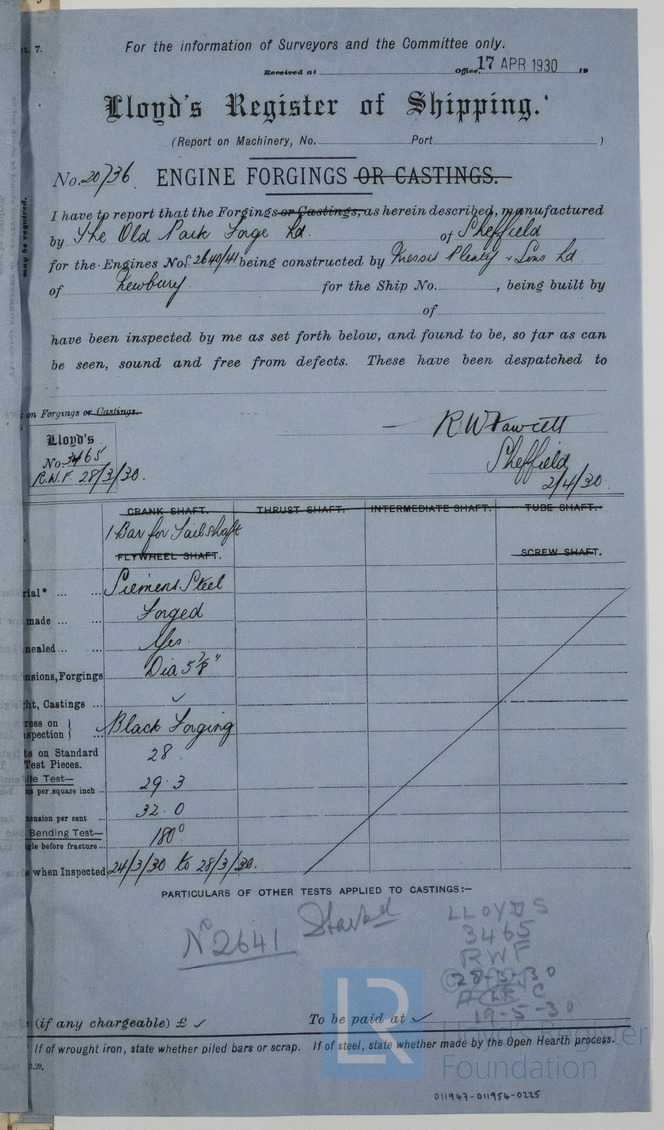 t. 7.
For the information of Surveyors and the Committee only.
Received at Office, 17 APR 1930 19
Lloyd's Register of Shipping.
(Report on Machinery, No. Port )
No. 20736 ENGINE FORGINGS OR CASTINGS.
may be required.
I have to report that the Forgings or Castings, as herein described, manufactured
by The Old Park Forge Ld. of Sheffield
for the Engines Nos. 2640/41 being constructed by Messrs Plenty & Sons Ld.
of Newbury for the Ship No. , being built by
of
have been inspected by me as set forth below, and found to be, so far as can
be seen, sound and free from defects. These have been despatched to
on Forgings or Castings.
Lloyd's
No. 3465
R.W.F. 28/3/30.
R W Fawcett
Sheffield
2/4/30.
CRANK SHAFT. THRUST SHAFT. INTERMEDIATE SHAFT. TUBE SHAFT.
1 Bar for Tailshaft
FLYWHEEL SHAFT. SCREW SHAFT.
rial* ... ... Siemens Steel
made ... ... Forged
nealed ... ... Yes.
nsions, Forgings Dia 5 7/8"
ht, Castings ... ✓
ress on }
spection } ... Black Forging
ts on Standard
Test Pieces. 28
ile Test—
s per square inch ... 29.3
ension per cent ... 32.0
Bending Test—
gle before fracture ... 180°
when Inspected 24/3/30 to 28/3/30.
PARTICULARS OF OTHER TESTS APPLIED TO CASTINGS:—
No 2641 Starbd
LLOYDS
3465
RWF
28-3-30
19-5-30
(if any chargeable) £ ✓ To be paid at ✓
If of wrought iron, state whether piled bars or scrap. If of steel, state whether made by the Open Hearth process.
3.29.
LR
Lloyd's Register
Foundation
011947-011954-0225